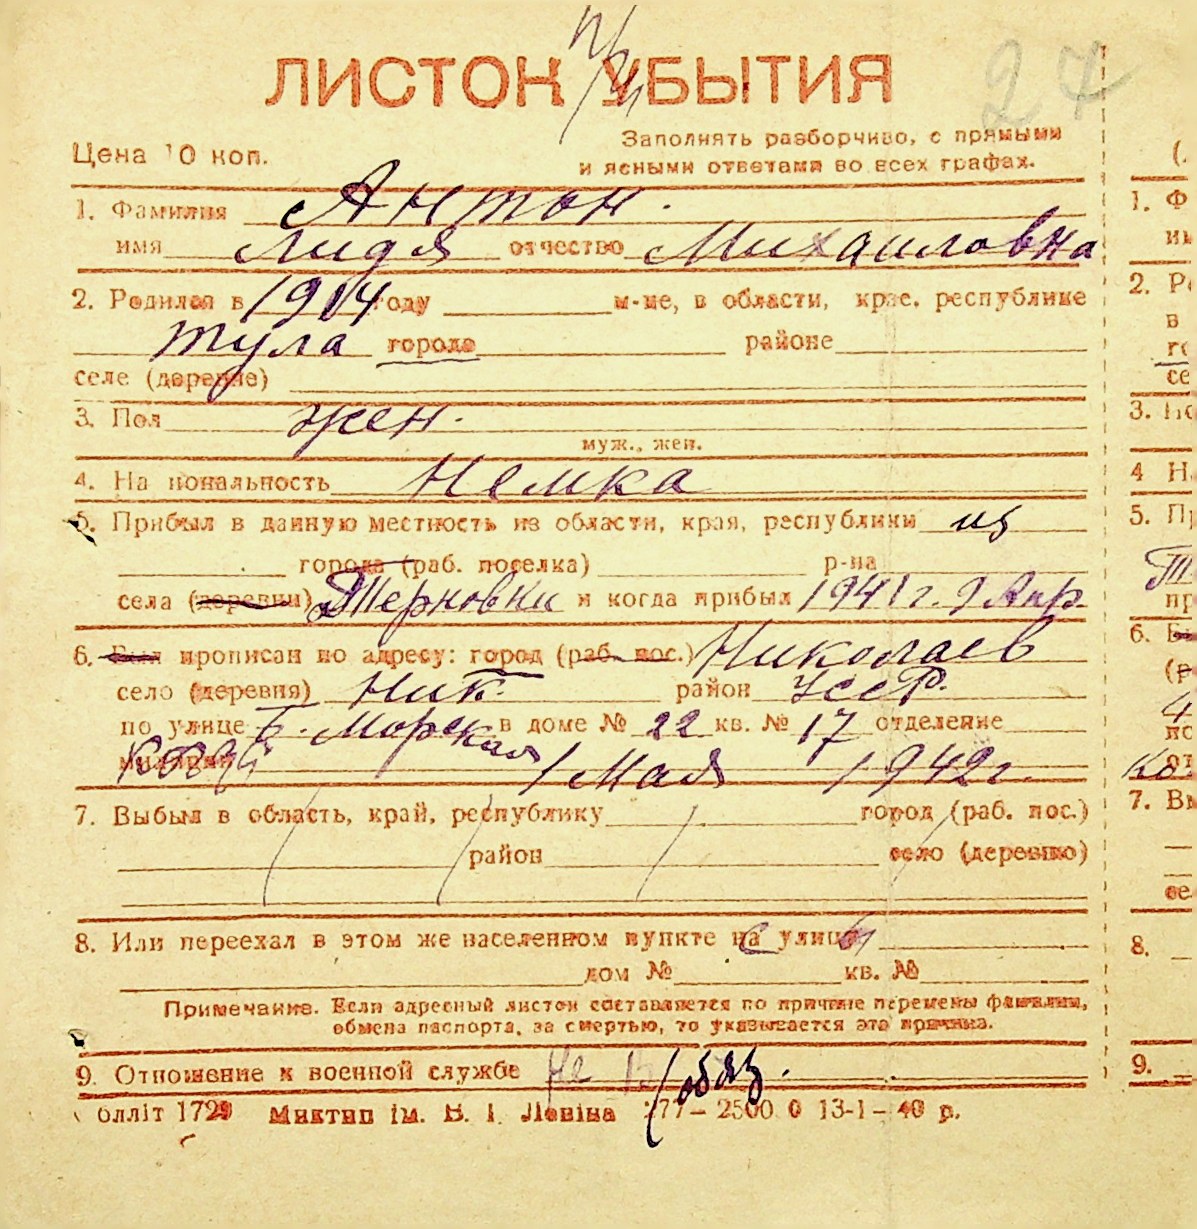 ЛИСТОК УБЫТИЯ
27
Цена 10 коп.
Заполнять разборчиво, с прямыми
и ясными ответами во всех графах.
1. Фамилия Антон.
имя Лидя отчество Михаиловна
2. Родился в 1914 году м-це, в области, крае, республике
Тула городе районе
селе (деревне)
3. Пол жен.
муж., жен.
4. Национальность Немка
5. Прибыл в данную местность из области, края, республики из
города (раб. поселка) р-на
села (деревни) Терновки и когда прибыл 1941 г. 9 Апр.
6. Был прописан по адресу: город (раб. пос.) Николаев
село (деревня) Ник. район УССР.
по улице Б. Морская в доме № 22 кв. № 17 отделение
милиции 1 Мая 1942 г.
7. Выбыл в область, край, республику город (раб. пос.)
район село (деревню)
8. Или переехал в этом же населенном пункте на улицу
дом № кв. №
Примечание. Если адресный листок составляется по причине перемены фамилии,
обмена паспорта, за смертью, то указывается эта причина.
9. Отношение к военной службе Не в/обяз.
олліт 1729 Миктип ім. В. І. Леніна 277–2500 0 13-1–40 р.
(.
1. Ф
2. Р
в
се
3.
4 Н
5. П
пр
6. Б
7. Вы
се
8.
9.